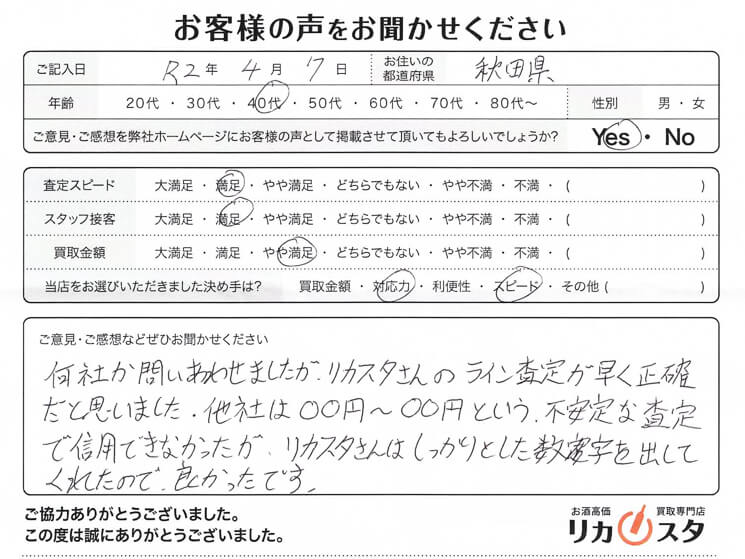 お客様の声をお聞かせください
ご記入日 R2年 4月 7日 お住いの都道府県 秋田県
年齢 20代・30代・40代・50代・60代・70代・80代～ 性別 男・女
ご意見・ご感想を弊社ホームページにお客様の声として掲載させて頂いてもよろしいでしょうか? Yes・No
査定スピード 大満足・満足・やや満足・どちらでもない・やや不満・不満・( )
スタッフ接客 大満足・満足・やや満足・どちらでもない・やや不満・不満・( )
買取金額 大満足・満足・やや満足・どちらでもない・やや不満・不満・( )
当店をお選びいただきました決め手は? 買取金額・対応力・利便性・スピード・その他( )
ご意見・ご感想などぜひお聞かせください
何社か問いあわせましたが、リカスタさんのライン査定が早く正確
だと思いました。他社は〇〇円～〇〇円という、不安定な査定
で信用できなかったが、リカスタさんはしっかりとした数字を出して
くれたので、良かったです。
ご協力ありがとうございました。
この度は誠にありがとうございました。
お酒高価 買取専門店
リカスタ